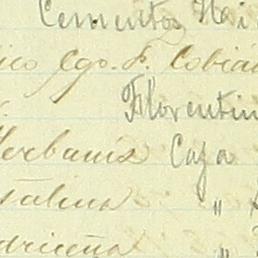 Cementos Hai
ico Cgo. F. Cobiá
Florentin
Herbania Caja
talina "
driceña "